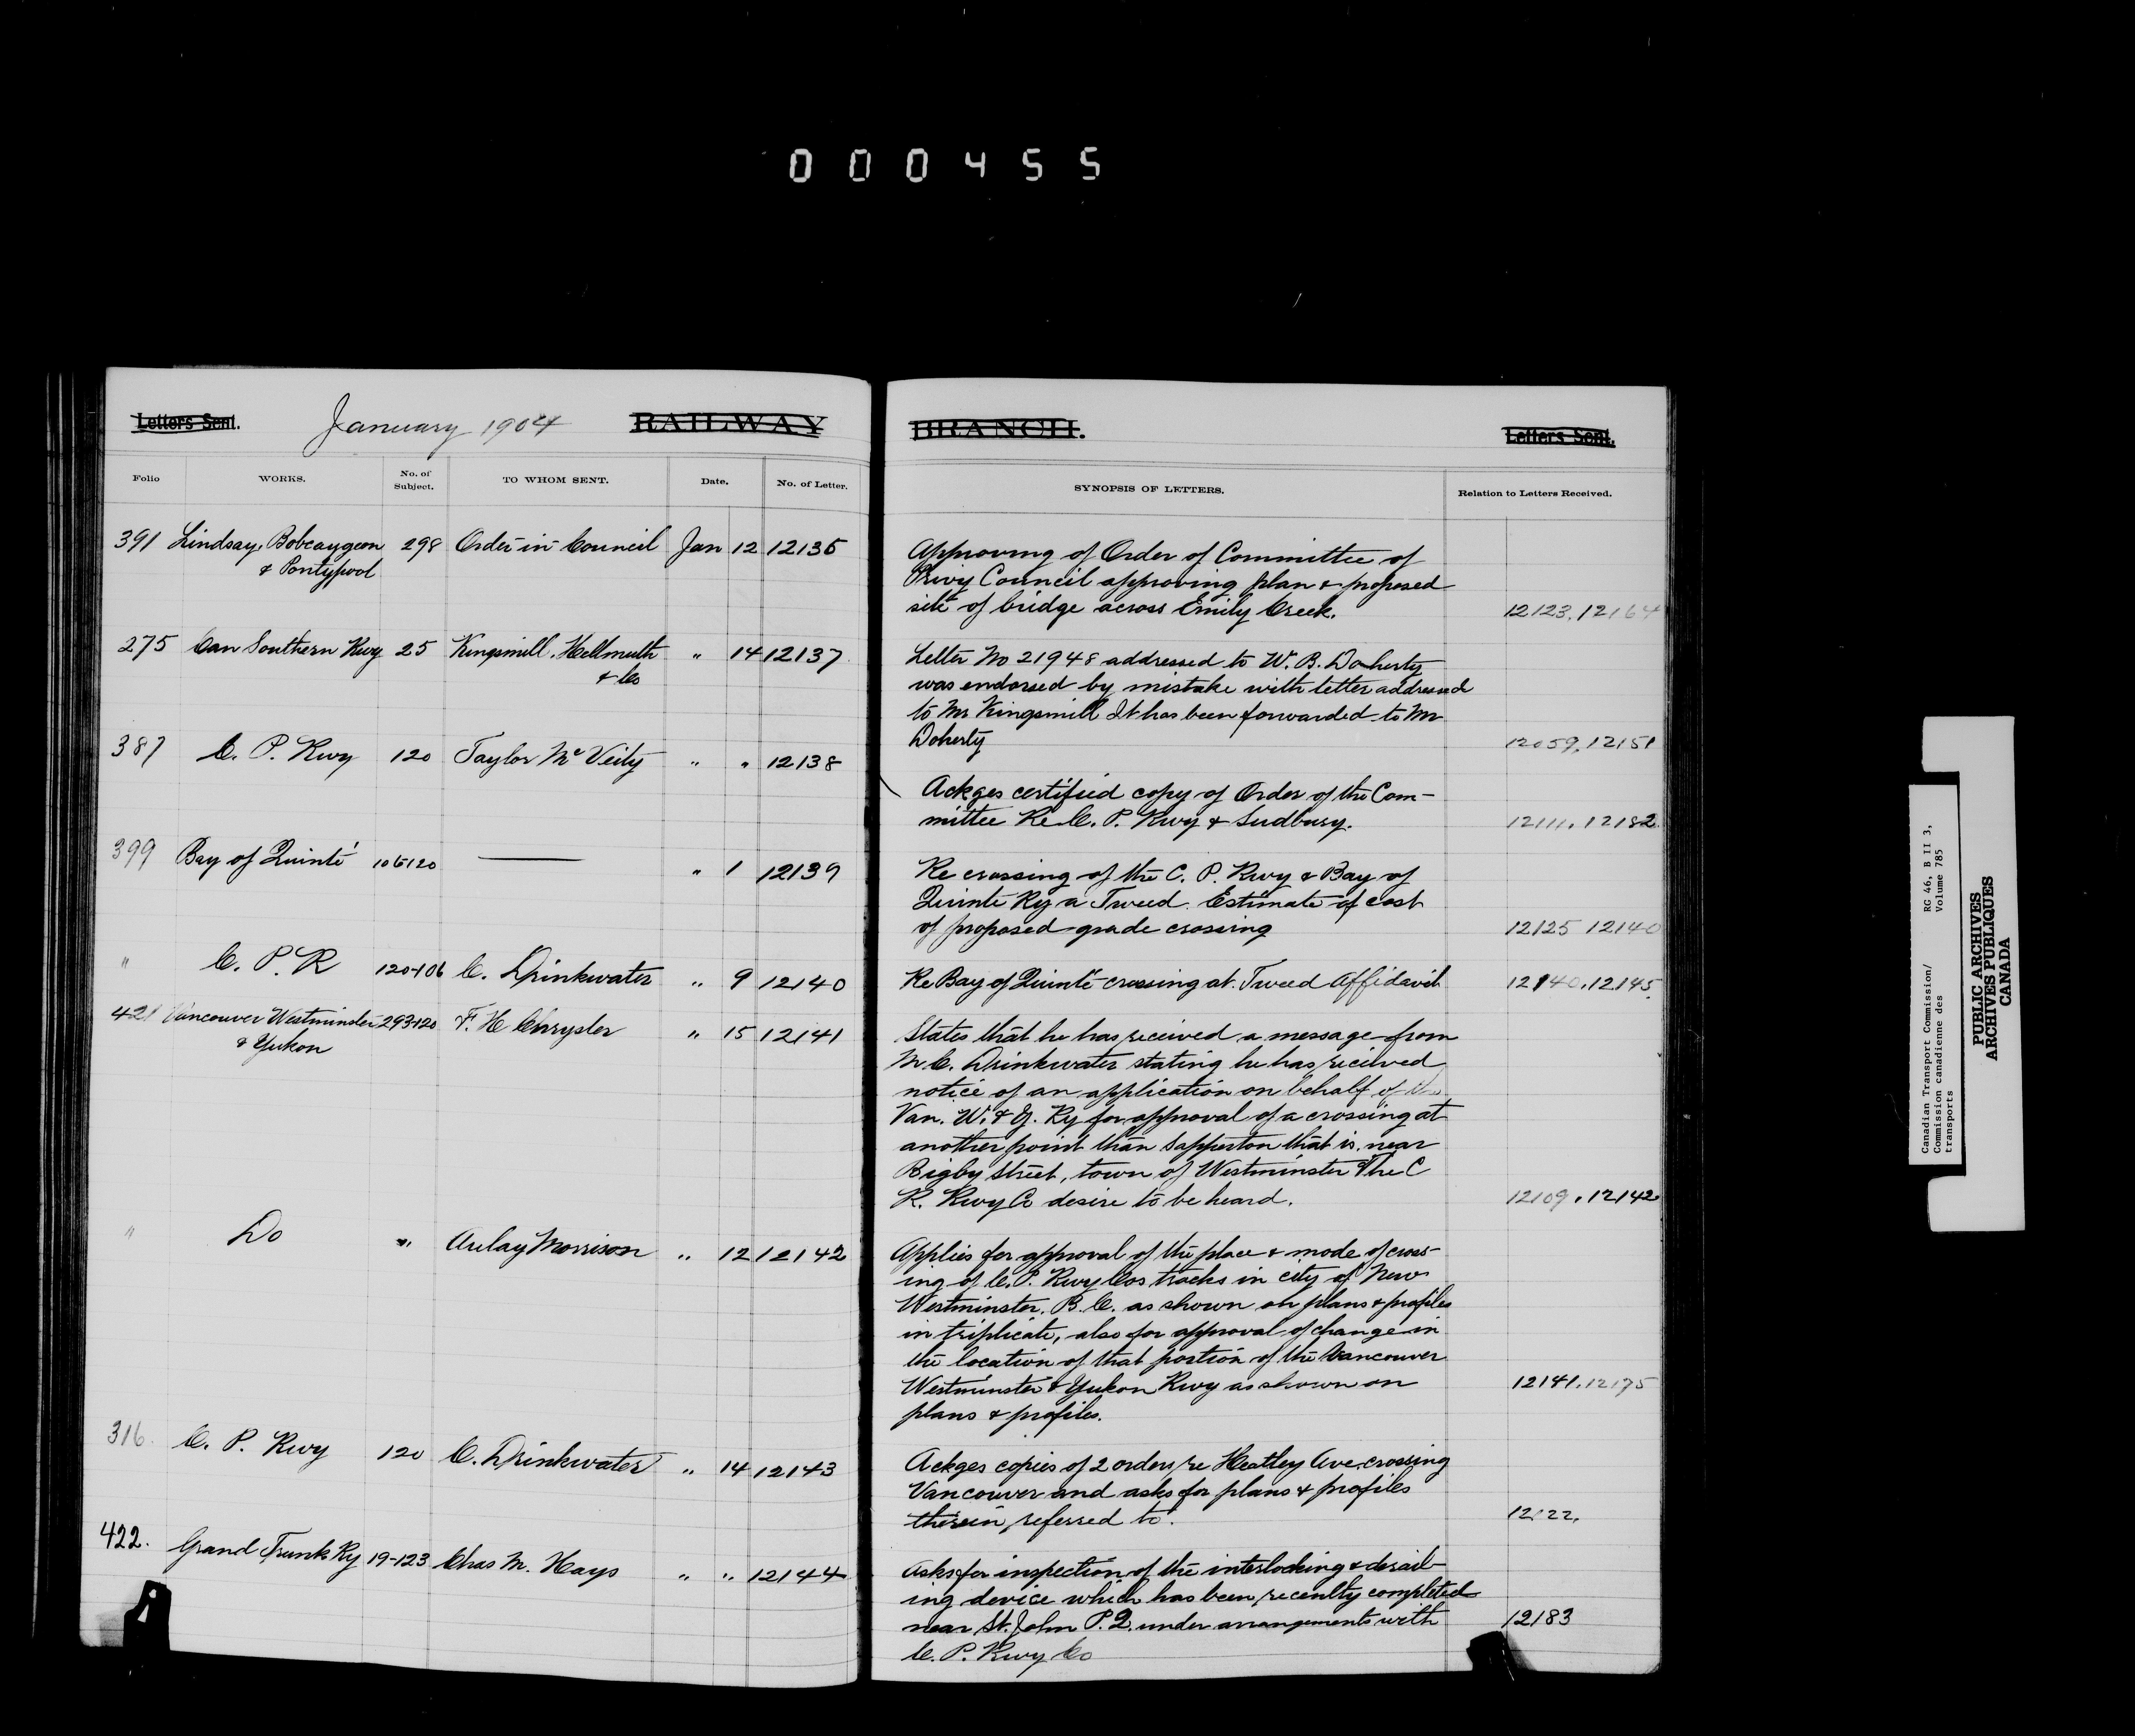 000455
Letters Sent. January 1904 RAILWAY BRANCH. Letters Sent.
Folio WORKS. No. of Subject. TO WHOM SENT. Date. No. of Letter. SYNOPSIS OF LETTERS. Relation to Letters Received.
391 Lindsay, Bobcaygeon 298 Order-in-Council Jan 12 12136
& Pontypool
Approving of Order of Committee of
Privy Council approving plan & proposed
site of bridge across Emily Creek. 12123, 12164
275 Can Southern Rwy 25 Kingsmill, Hellmuth " 14 12137
& Co
Letter No 21948 addressed to W. B. Doherty
was endorsed by mistake with letter addressed
to Mr Kingsmill It has been forwarded to Mr
Doherty 12059, 12151
387 C. P. Rwy 120 Taylor McVeity " " 12138
Ackges certified copy of Order of the Com-
mittee Re C. P. Rwy & Sudbury. 12111, 12182
399 Bay of Quinté 106120 — " 1 12139
Re crossing of the C. P. Rwy & Bay of
Quinte Ry a Tweed. Estimate of cost
of proposed grade crossing 12125 12140
" C. P. R 120-106 C. Drinkwater " 9 12140
Re Bay of Quinté crossing at Tweed Affidavit 12140, 12145
421 Vancouver Westminster 293-120 F. H Chrysler " 15 12141
& Yukon
States that he has received a message from
Mr C. Drinkwater stating he has received
notice of an application on behalf of the
Van. W. & Y. Ry for approval of a crossing at
another point than Sapperton that is, near
Bigby Street, town of Westminster The C
R. Rwy Co desire to be heard. 12109, 12142
" Do " Aulay Morrison " 12 12142
Applies for approval of the place & mode of cross-
ing of C. P. Rwy Cos tracks in city of New
Westminster, B. C. as shown on plans & profiles
in triplicate, also for approval of change in
the location of that portion of the Vancouver
Westminster & Yukon Rwy as shown on
plans & profiles. 12141, 12175
316. C. P. Rwy 120 C. Drinkwater " 14 12143
Ackges copies of 2 orders re Heatley Ave crossing
Vancouver and asks for plans & profiles
therein referred to. 12122,
422. Grand Trunk Ry 19-123 Chas M. Hays " " 12144
Asks for inspection of the interlocking & derail-
ing device which has been recently completed
near St. John P. Q. under arrangements with
C. P. Rwy Co 12183
Canadian Transport Commission/ RG 46, B II 3,
Commission canadienne des Volume 785
transports
PUBLIC ARCHIVES
ARCHIVES PUBLIQUES
CANADA